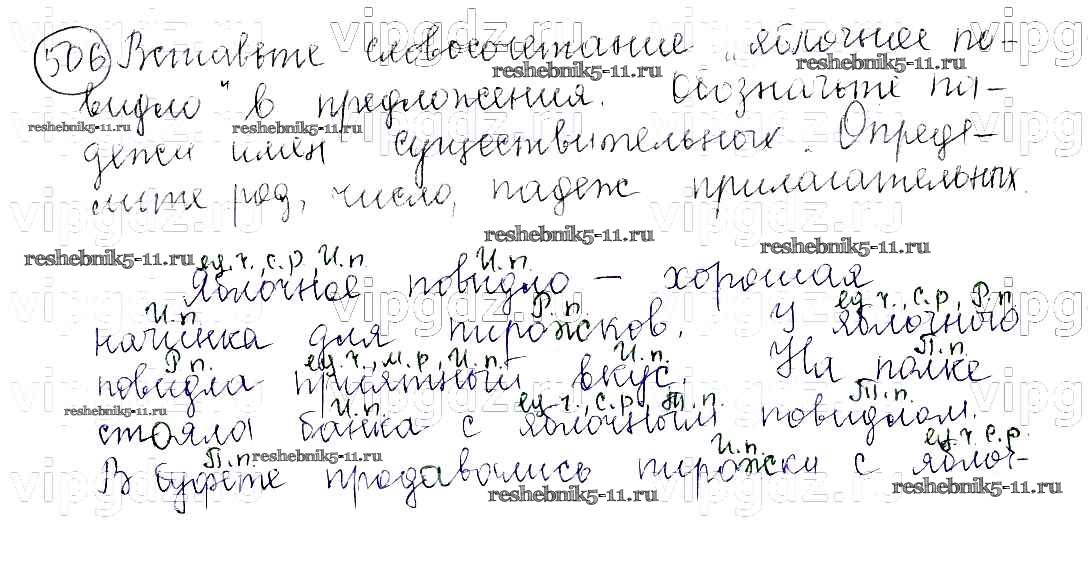 506 Вставьте словосочетание „яблочное по-
видло" в предложения. Обозначьте па-
дежи имён существительных. Опреде-
лите род, число, падеж прилагательных.
ед.ч., с.р., И.п. И.п.
Яблочное повидло – хорошая
И.п. Р.п. ед.ч., с.р., Р.п.
начинка для пирожков. У яблочного
Р.п. ед.ч., м.р., И.п. И.п. П.п.
повидла приятный вкус. На полке
И.п. ед.ч., с.р., Т.п. Т.п.
стояла банка с яблочным повидлом.
П.п. И.п. ед.ч. с.р.
В буфете продавались пирожки с яблоч-
vipgdz.ru
reshebnik5-11.ru